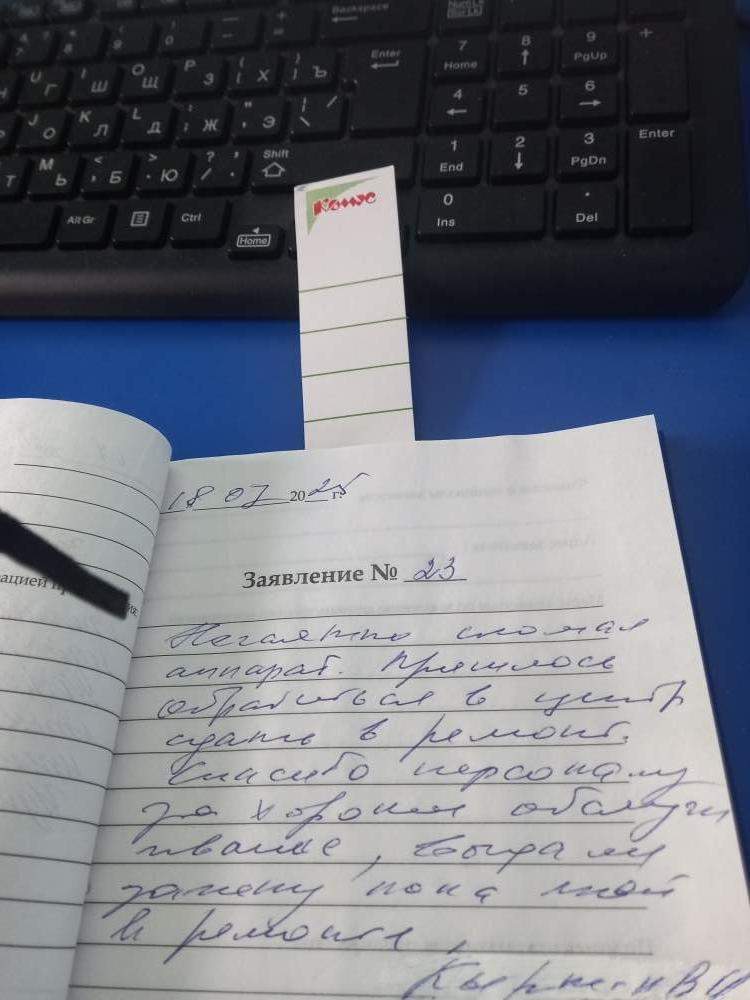 Backspace
Enter
7 Home
8
9 PgUp
+
Г Ш Щ З Х Ъ
4
5
6
О Л Д Ж Э
Shift
1 End
2
3 PgDn
Enter
Т Ь Б Ю
Alt Gr
Ctrl
Home
0 Ins
. Del
Комус
18 07 2025 г.
Заявление № 23
Негаянно сломал
аппарат. Пришлось
обратиться в центр
сдать в ремонт.
Спасибо персоналу
за хорошее обслужи
ивание, выдали
замену пока мой
в ремонте.
В И